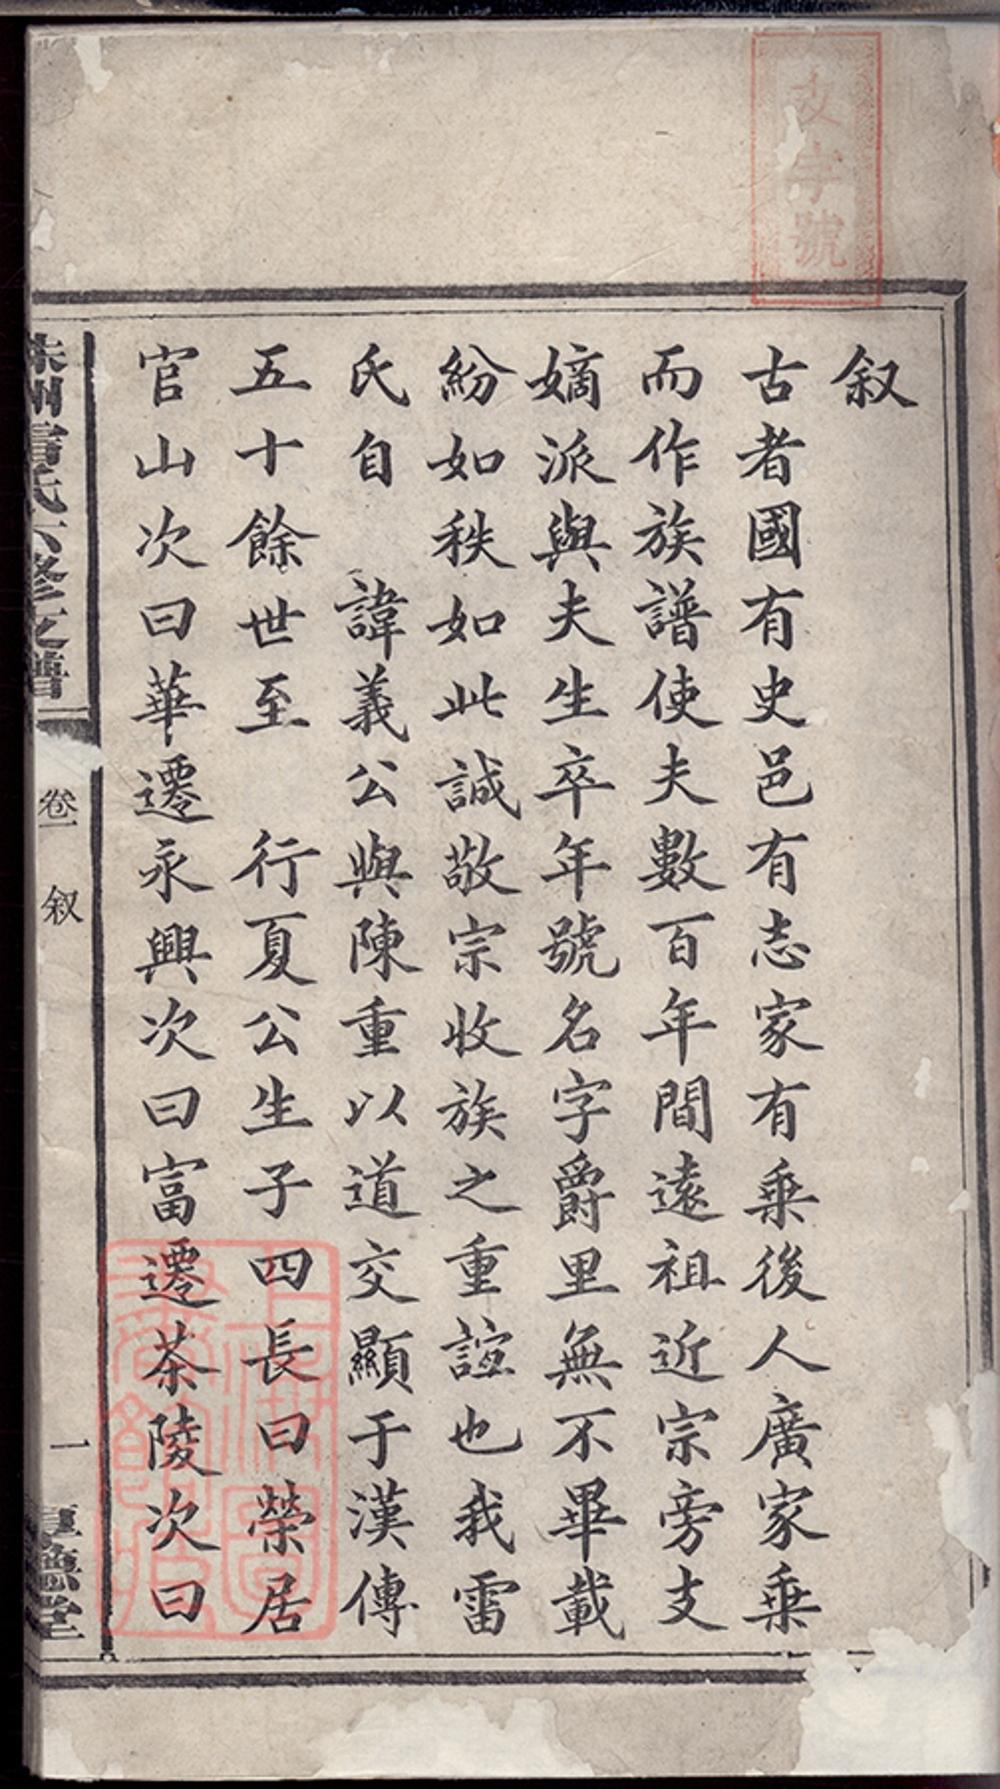 字號
叙
古者國有史邑有志家有乗後人廣家乗
而作族譜使夫數百年間遠祖近宗旁支
嫡派與夫生卒年年號名字爵里無不畢載
紛如秩如此誠敬宗收族之重誼也我雷
氏自 諱義公與陳重以道交顯于漢傳
五十餘世至 行夏公生子四長曰榮居
官山次曰華遷永興次曰富遷茶陵次曰
卷一 叙
一